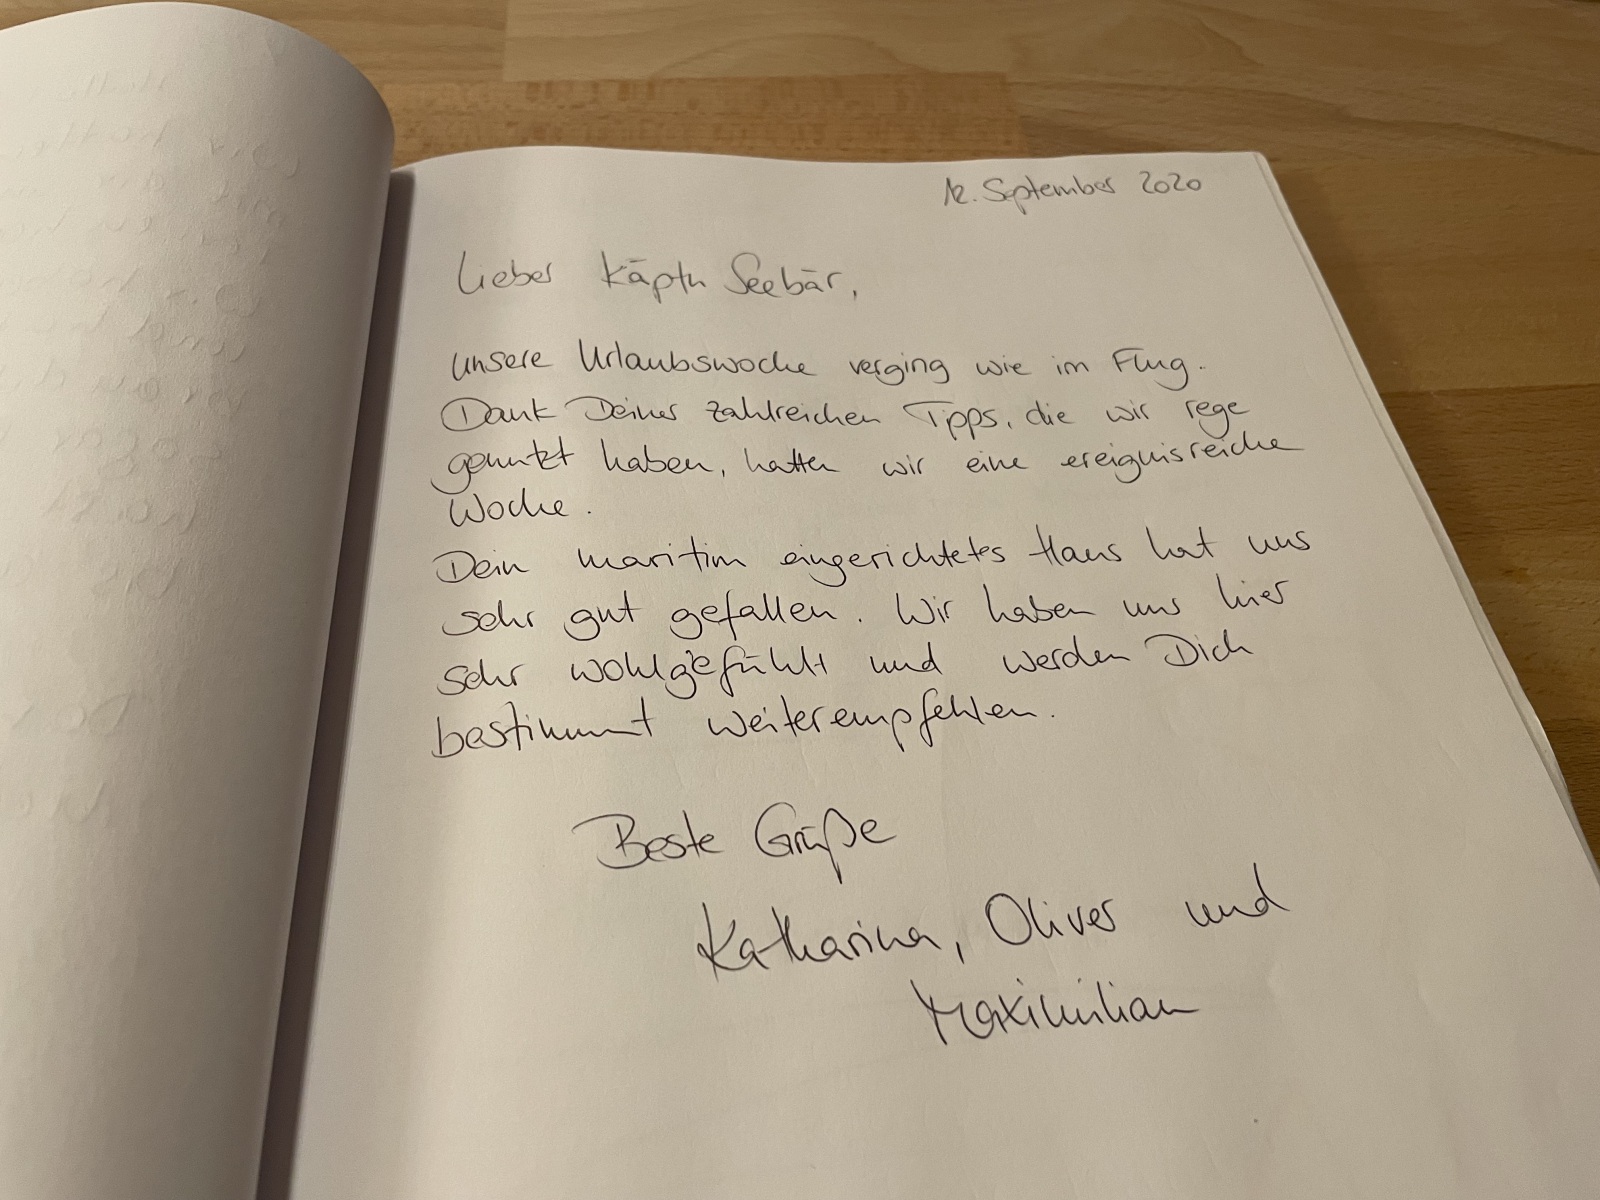 12. September 2020
Lieber Käptn Seebär,
unsere Urlaubswoche verging wie im Flug.
Dank Deiner zahlreichen Tipps, die wir rege
genutzt haben, hatten wir eine ereignisreiche
Woche.
Dein maritim eingerichtetes Haus hat uns
sehr gut gefallen. Wir haben uns hier
sehr wohlgefühlt und werden Dich
bestimmt weiterempfehlen.
Beste Grüße
Katharina, Oliver und
Maximilian